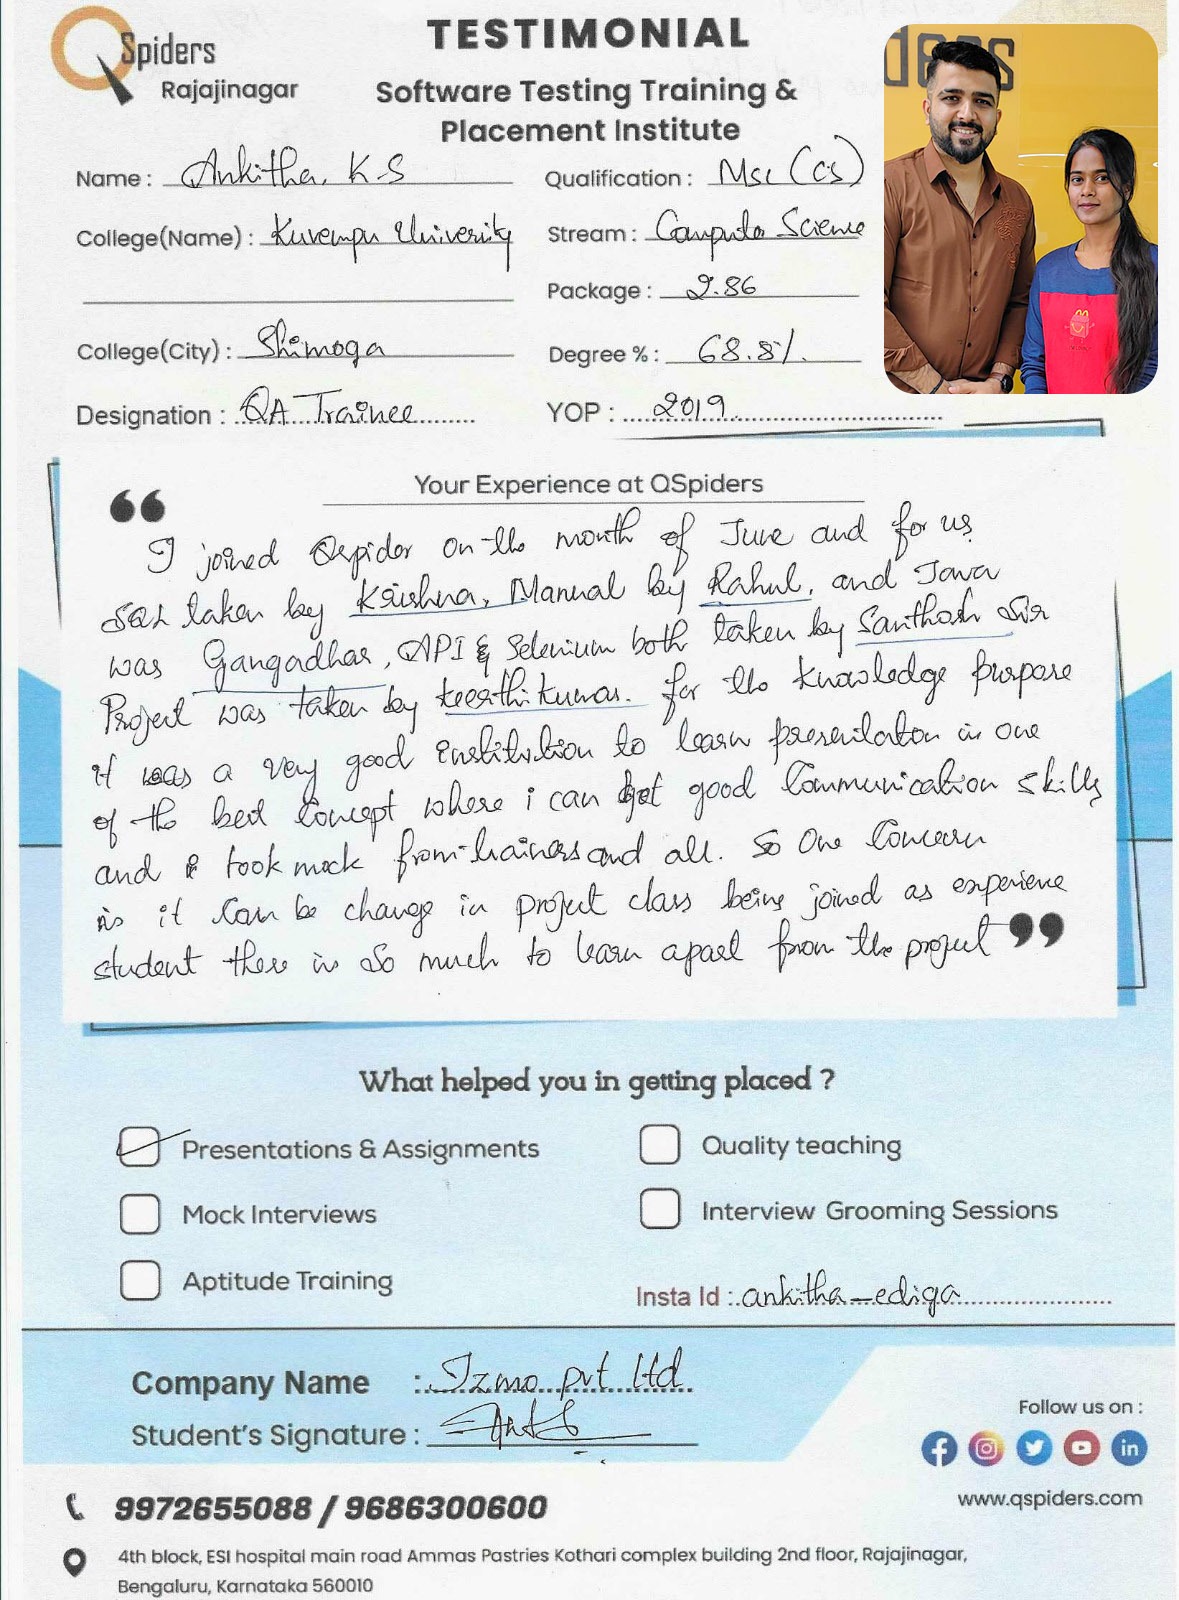 Spiders
Rajajinagar
TESTIMONIAL
Software Testing Training &
Placement Institute
Name : Ankitha. K.S
Qualification : Msc (CS)
College(Name) : Kuvempu University
Stream : Computer Science
Package : 2.86
College(City) : Shimoga
Degree % : 68.8%.
Designation : QA Trainee
YOP : 2019
Your Experience at QSpiders
“
I joined Qspider on the month of June and for us
SQL taken by Krishna, Manual by Rahul, and Java
was Gangadhar, API & Selenium both taken by Santhosh Sir
Project was taken by keerthi kumar. for the knowledge purpose
it was a very good institution to learn presentation is one
of the best concept where i can get good communication skills
and i took mock from trainers and all. So One concern
is it can be change in project class being joined as experience
student there is so much to learn apart from the project ”
What helped you in getting placed ?
Presentations & Assignments
Quality teaching
Mock Interviews
Interview Grooming Sessions
Aptitude Training
Insta Id : ankitha_ediga
Company Name : Izmo pvt ltd
Student's Signature :
Follow us on :
www.qspiders.com
9972655088 / 9686300600
4th block, ESI hospital main road Ammas Pastries Kothari complex building 2nd floor, Rajajinagar,
Bengaluru, Karnataka 560010